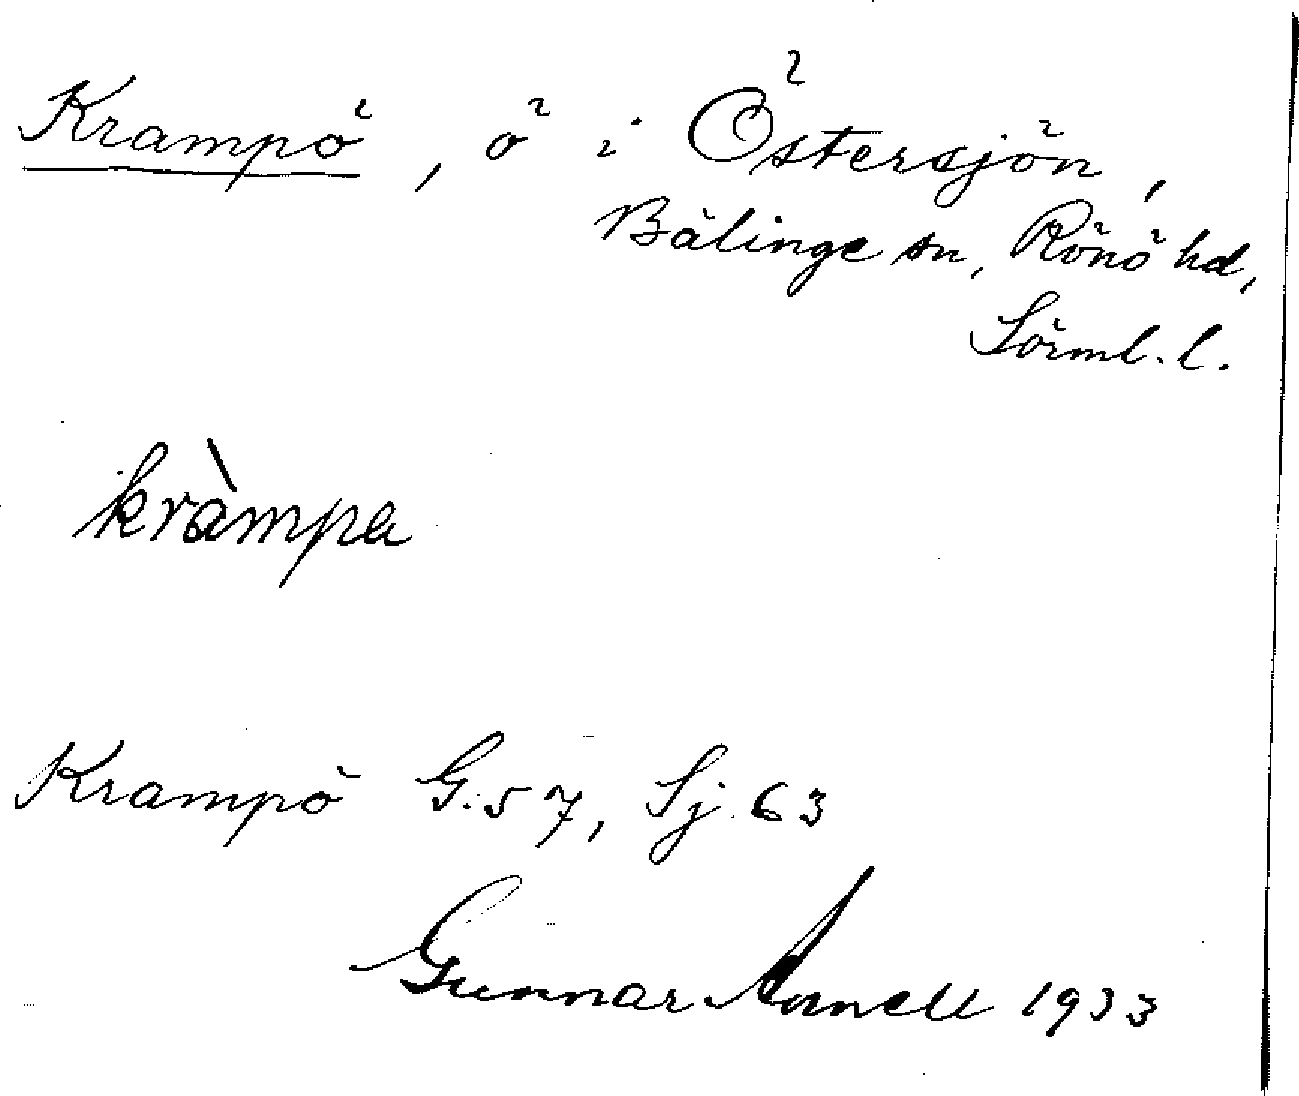 Krampö, ö i Östersjön,
Bälinge sn, Rönö hd,
Sörml. l.
kràmpa
Krampö G. 57, Sj. 63
Gunnar Arnell 1933